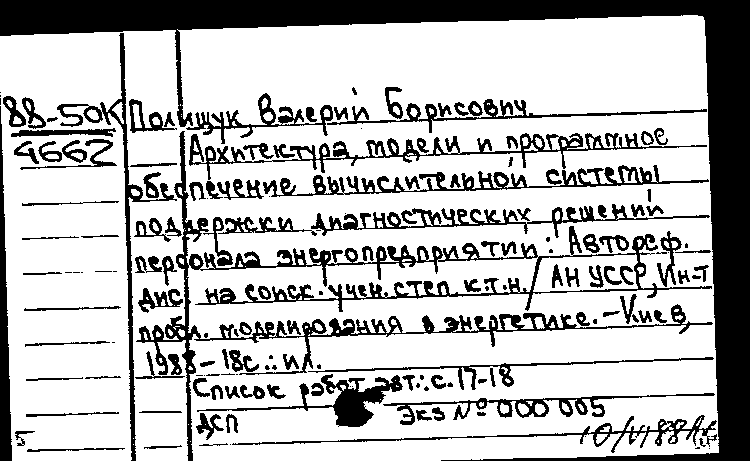 88-50К Полищук, Валерий Борисович.
4662 Архитектура, модели и программное
обеспечение вычислительной системы
поддержки диагностических решений
персонала энергопредприятий: Автореф.
дис. на соиск. учен. степ. к.т.н. / АН УССР, Ин-т
пробл. моделирования в энергетике. - Киев,
1988 - 18с.: ил.
Список работ авт.: с. 17-18
ДСП Экз № 000 005
5 10/VI 88